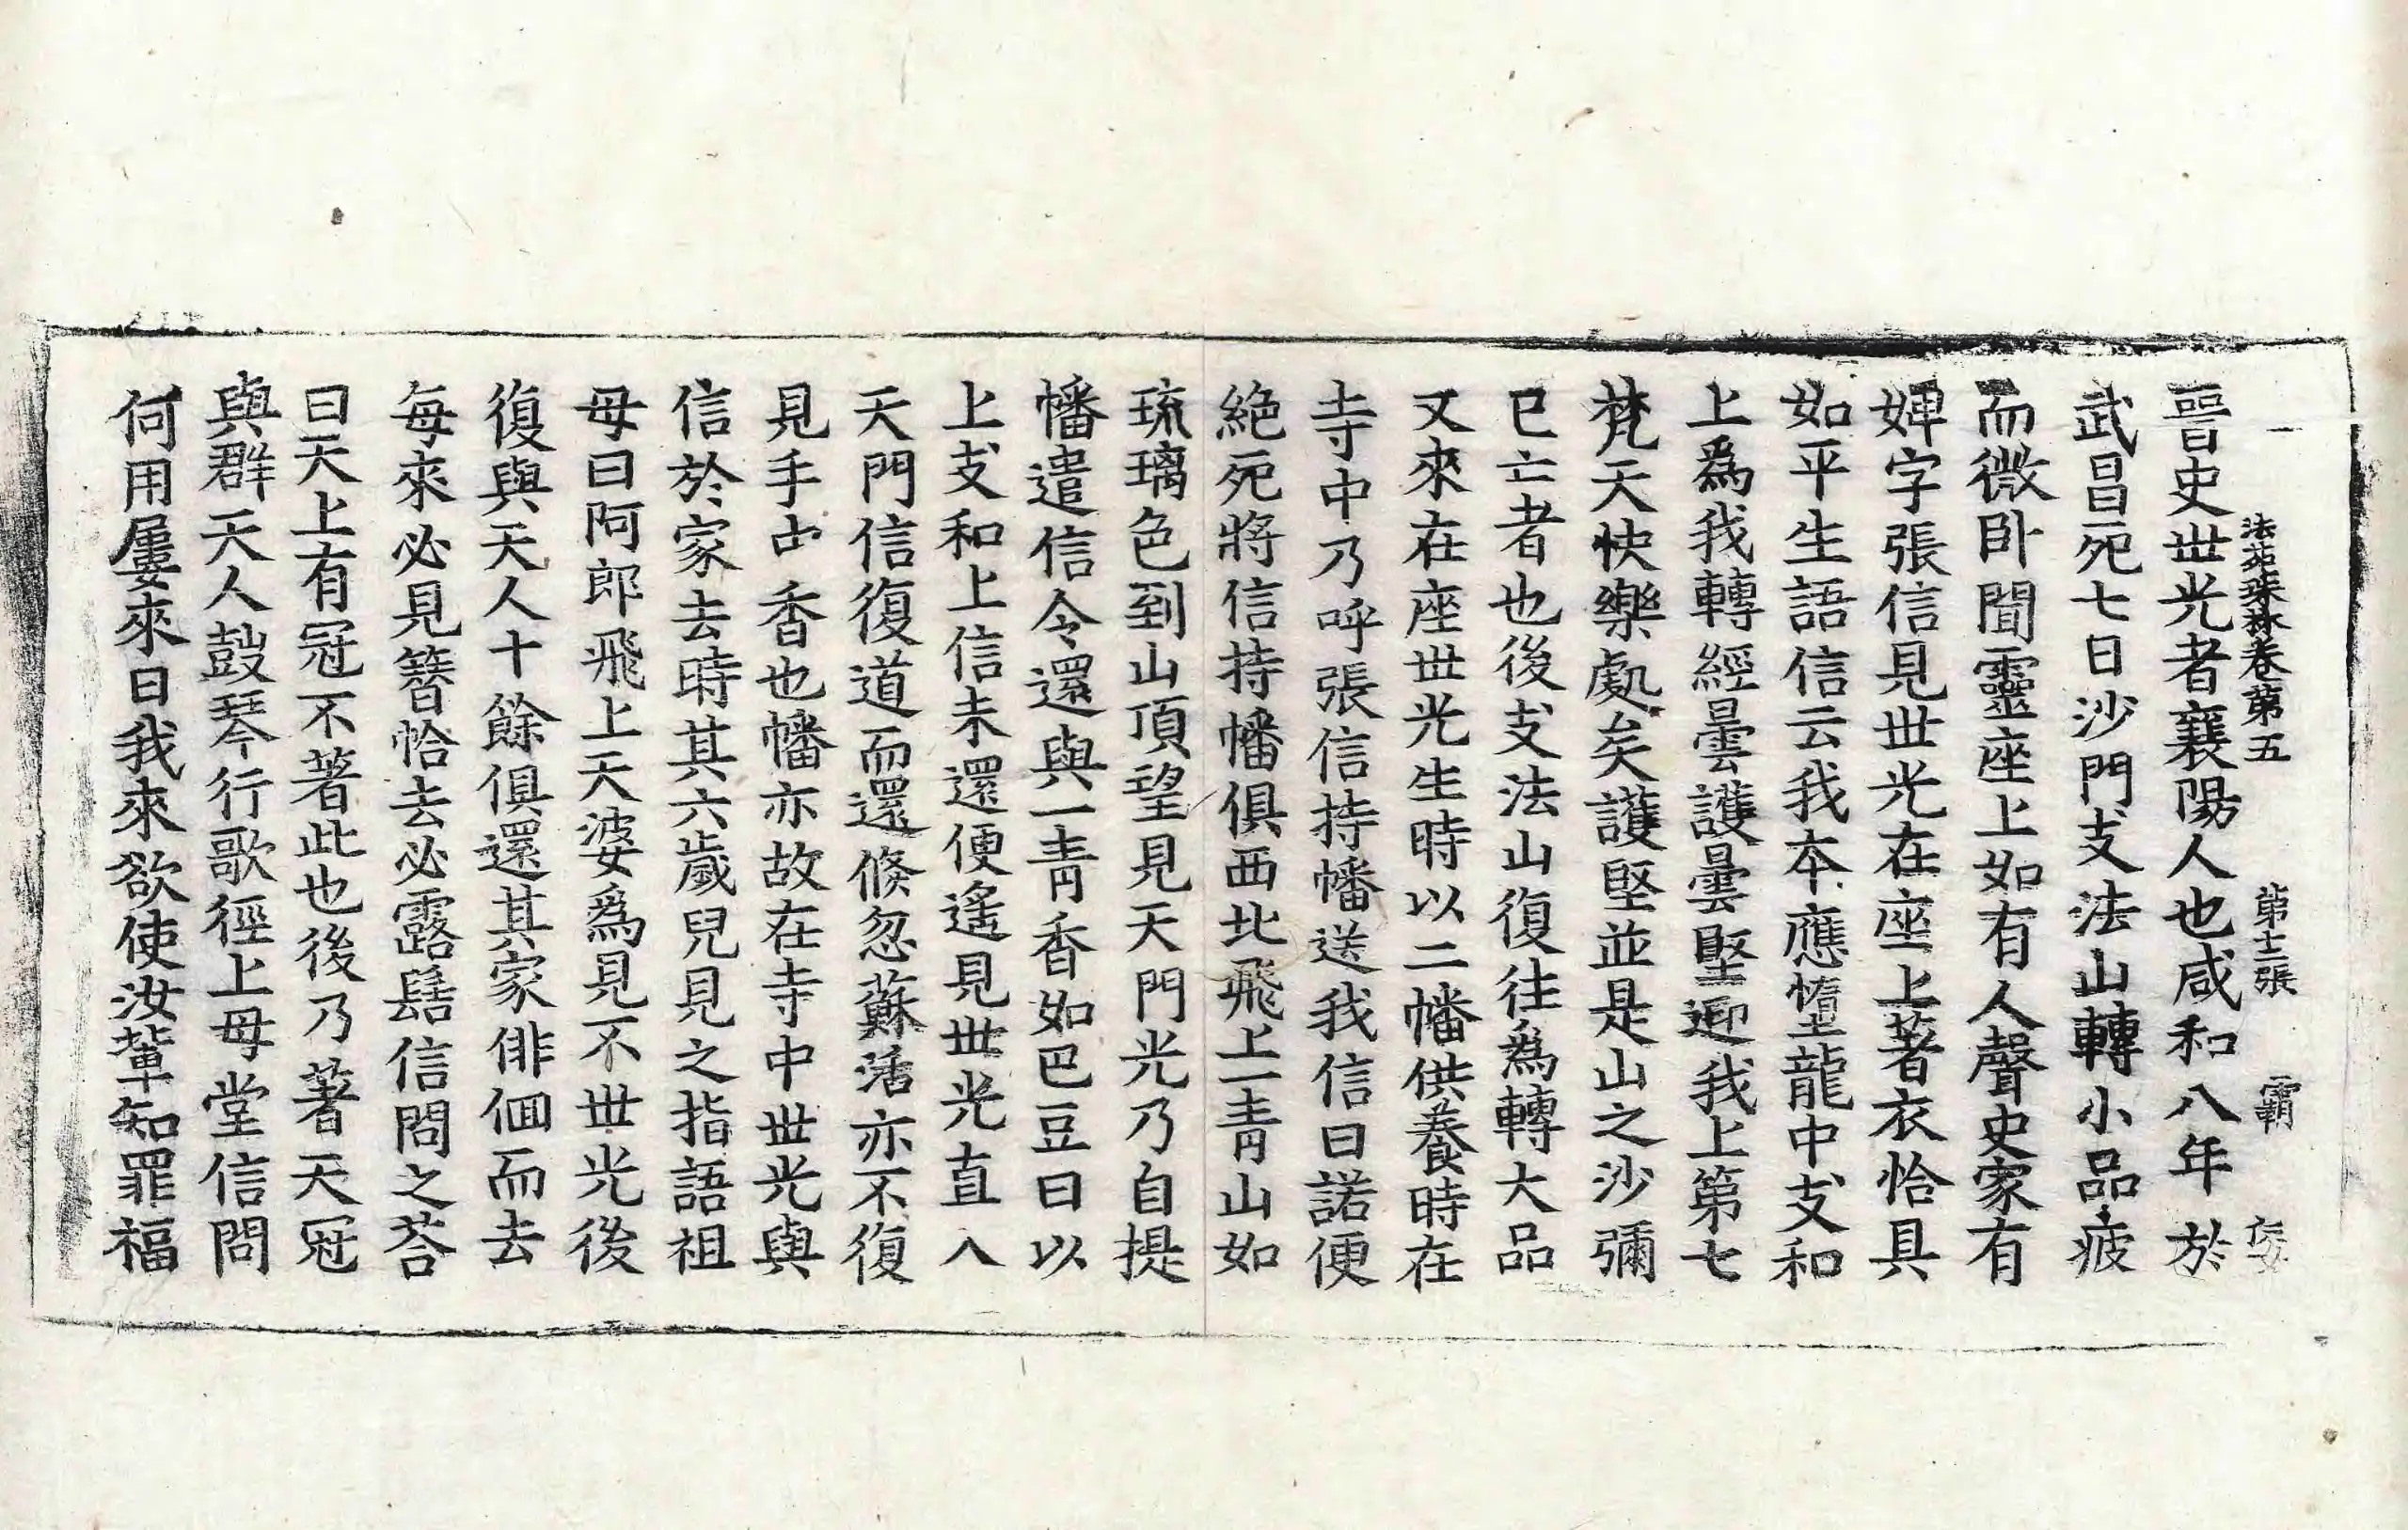 法苑珠林卷第五 第十二張 霸
晉史世光者襄陽人也咸和八年於
武昌死七日沙門支法山轉小品疲
而微臥聞靈座上如有人聲史家有
婢字張信見世光在座上著衣恰具
如平生語信云我本應墮龍中支和
上為我轉經曇護曇堅迎我上第七
梵天快樂處矣護堅並是山之沙彌
已亡者也後支法山復往為轉大品
又來在座世光生時以二幡供養時在
寺中乃呼張信持幡送我信曰諾便
絕死將信持幡俱西北飛上一青山如
琉璃色到山頂望見天門光乃自提
幡遣信令還與一青香如巴豆曰以
上支和上信未還便遙見世光直入
天門信復道而還倏忽蘇活亦不復
見手中香也幡亦故在寺中世光與
信於家去時其六歲兒見之指語祖
母曰阿郎飛上天婆為見不世光後
復與天人十餘俱還其家俳佪而去
每來必見簪恰去必露髻信問之荅
曰天上有冠不著此也後乃著天冠
與群天人鼓琴行歌徑上母堂信問
何用屢來曰我來欲使汝輩知罪福